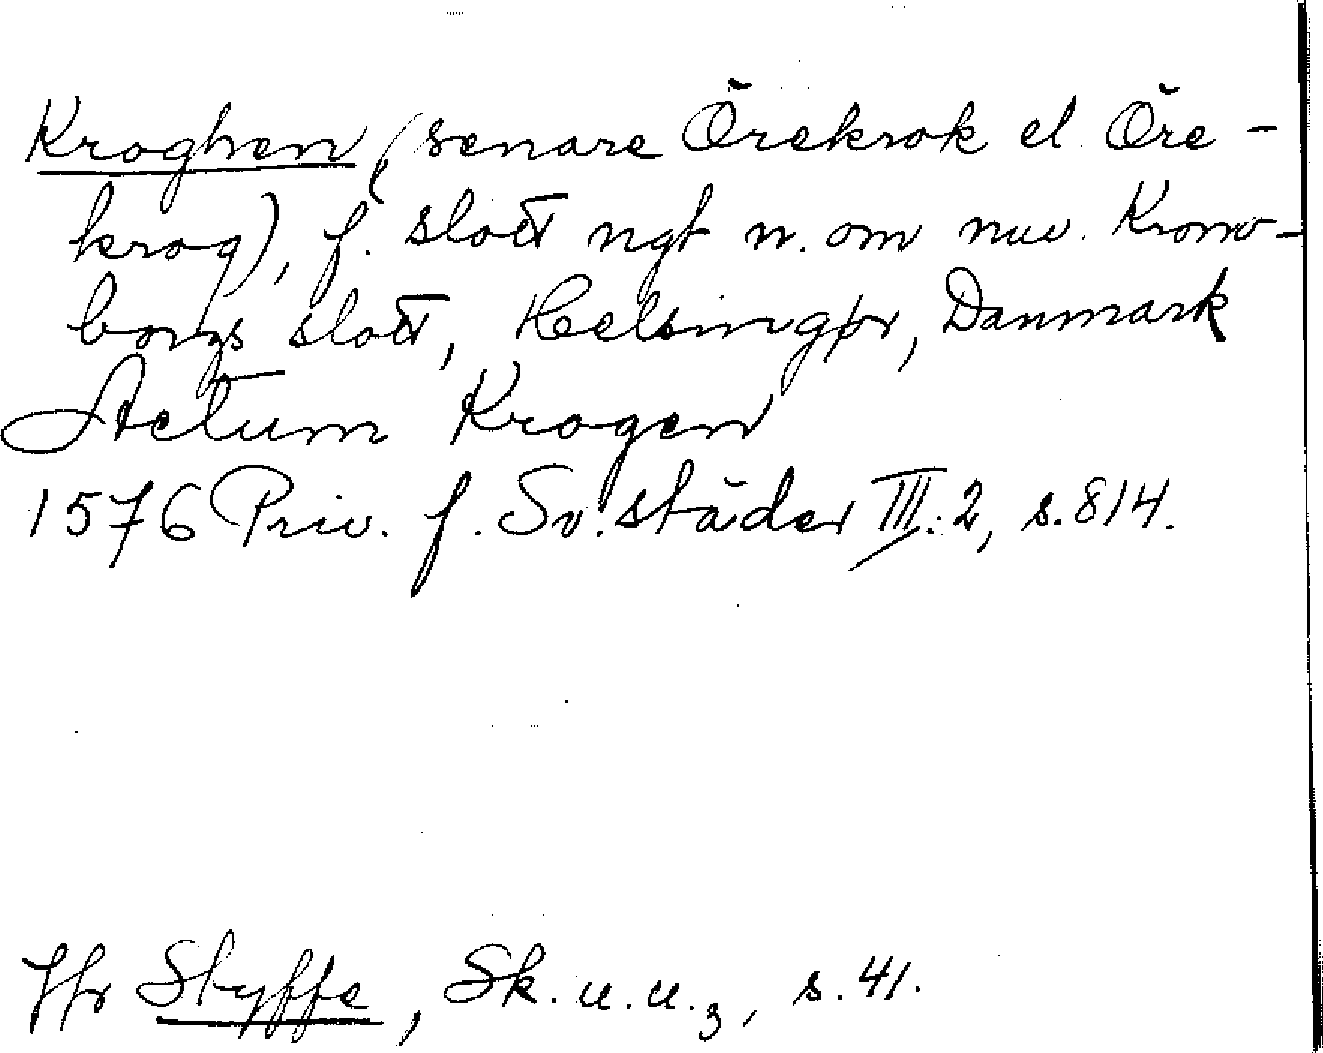 Kroghen (senare Örekrok el. Öre-
krog), f. slott ngt n. om nuv. Krono-
borgs slott, Helsingør, Danmark
Actum Krogen
1576 Priv. f. Sv. städer III:2, s. 814.
Jfr Styffe, Sk. u. u. 3, s. 41.